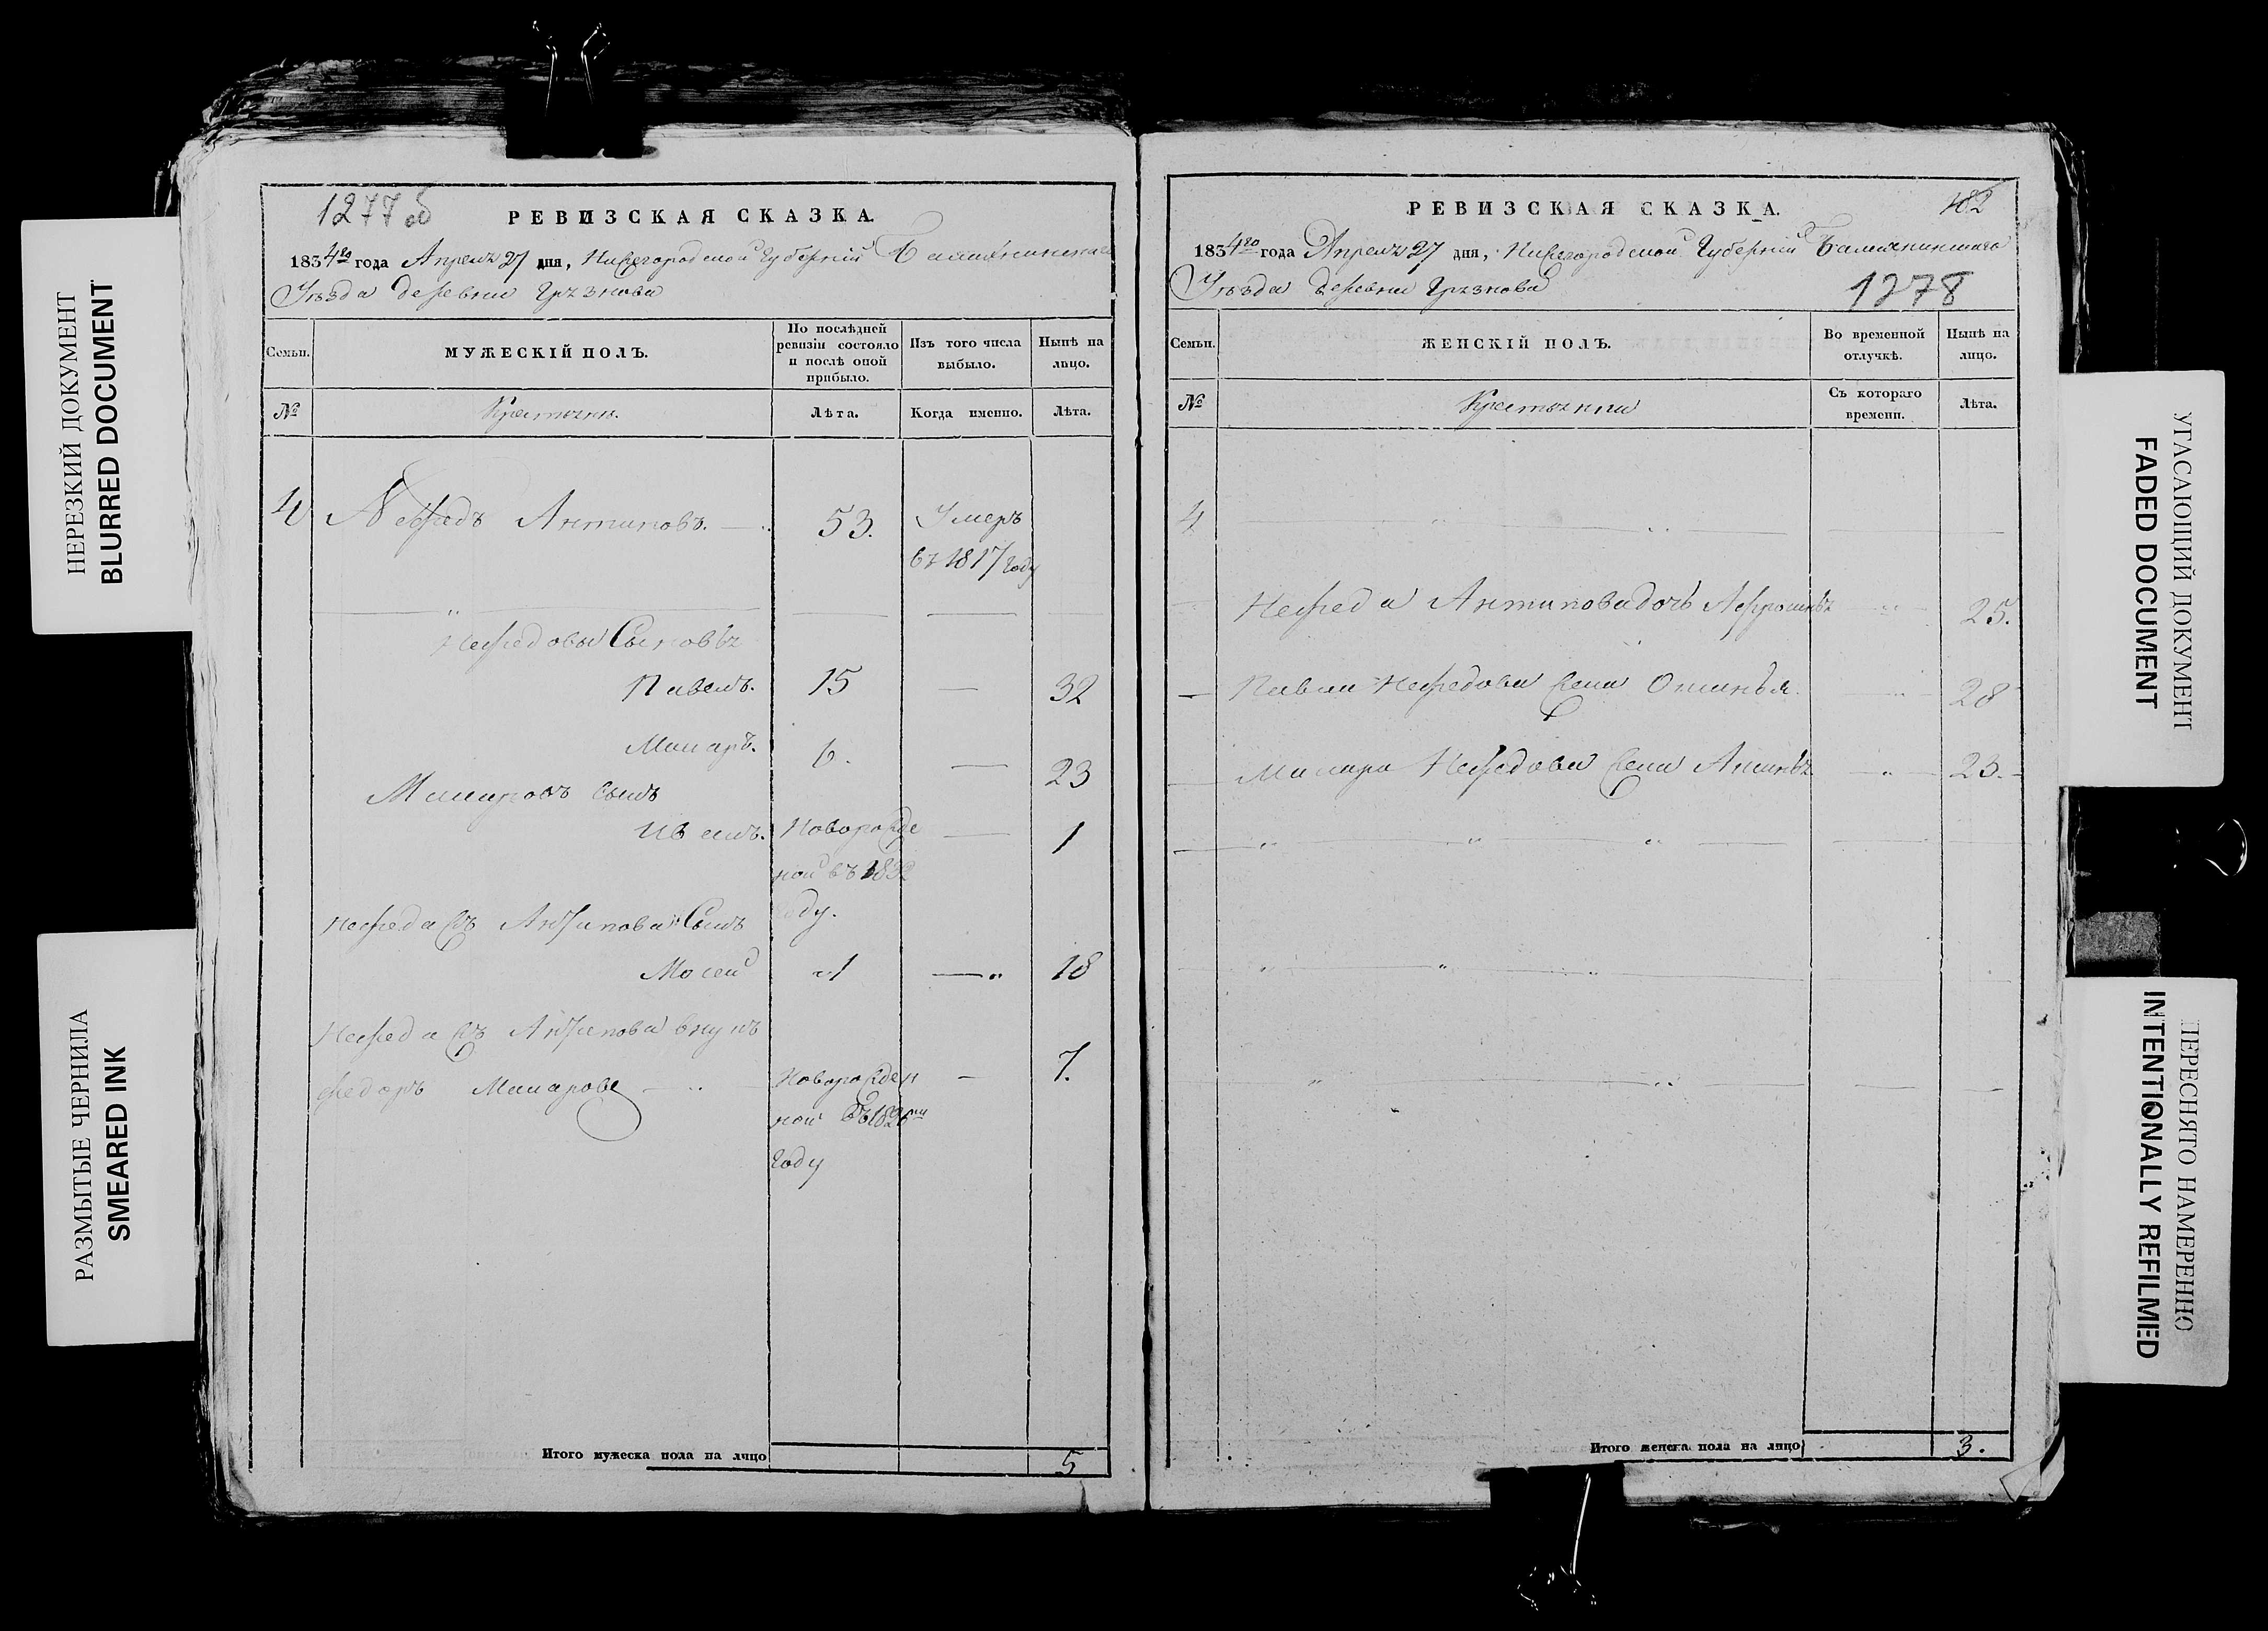 НЕРЕЗКИЙ ДОКУМЕНТ
BLURRED DOCUMENT
РАЗМЫТЫЕ ЧЕРНИЛА
SMEARED INK
1277 об
РЕВИЗСКАЯ СКАЗКА.
1834го года Апреля 27 дня, Нижегородской Губернии Балахнинскаго
Уѣзда деревни Грязнова
Семьи.
МУЖЕСКІЙ ПОЛЪ.
По послѣдней ревизіи состояло и послѣ оной прибыло.
Изъ того числа выбыло.
Нынѣ на лицо.
№
Крестьяни.
Лѣта.
Когда именно.
Лѣта.
4 Нефедъ Антиповъ. 53. Умеръ
въ 1817 году
Нефедовы Сыновья
Павелъ. 15 — 32
Макаръ. 6. — 23
Макаровъ сынъ
Новорожде — 1
ной въ 1832
году.
Нефеда жъ Антипова Сынъ
Мосей 1 — 18
Нефеда жъ Антипова внукъ
Федоръ Макаровъ Новорожден — 7.
ной въ 1826мъ
году
Итого мужеска пола на лицо 5
РЕВИЗСКАЯ СКАЗКА.
182
1834го года Апреля 27 дня, Нижегородской Губерніи Балахнинскаго
Уѣзда деревни Грязнова
1278
Семьи.
ЖЕНСКІЙ ПОЛЪ.
Во временной отлучкѣ.
Нынѣ на лицо.
№
Крестьянки
Съ котораго времени.
Лѣта.
4
Нефеда Антипова дочь 25.
Павла Нефедова жена 28
Макара Нефедова жена 23.
Итого женска пола на лицо 3.
УГАСАЮЩИЙ ДОКУМЕНТ
FADED DOCUMENT
ПЕРЕСНЯТО НАМЕРЕННО
INTENTIONALLY REFILMED